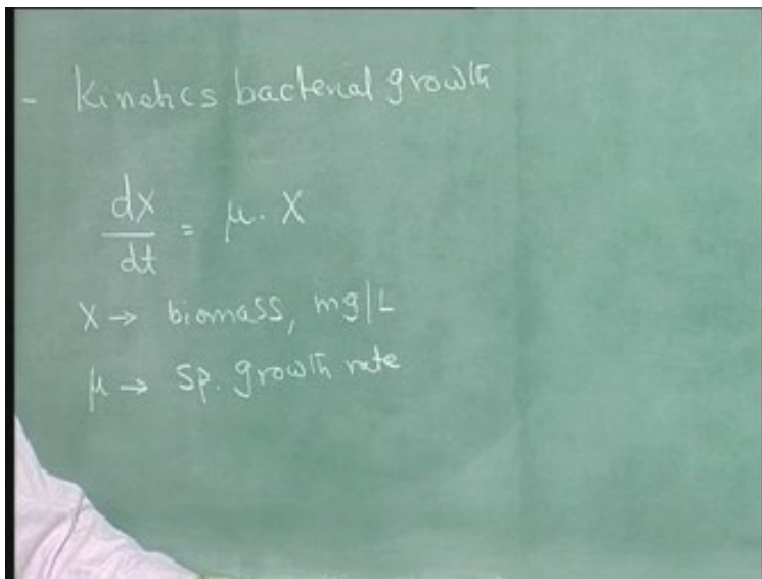 - Kinetics bacterial growth
dx/dt = μ. X
X → biomass, mg|L
μ → Sp. growth rate